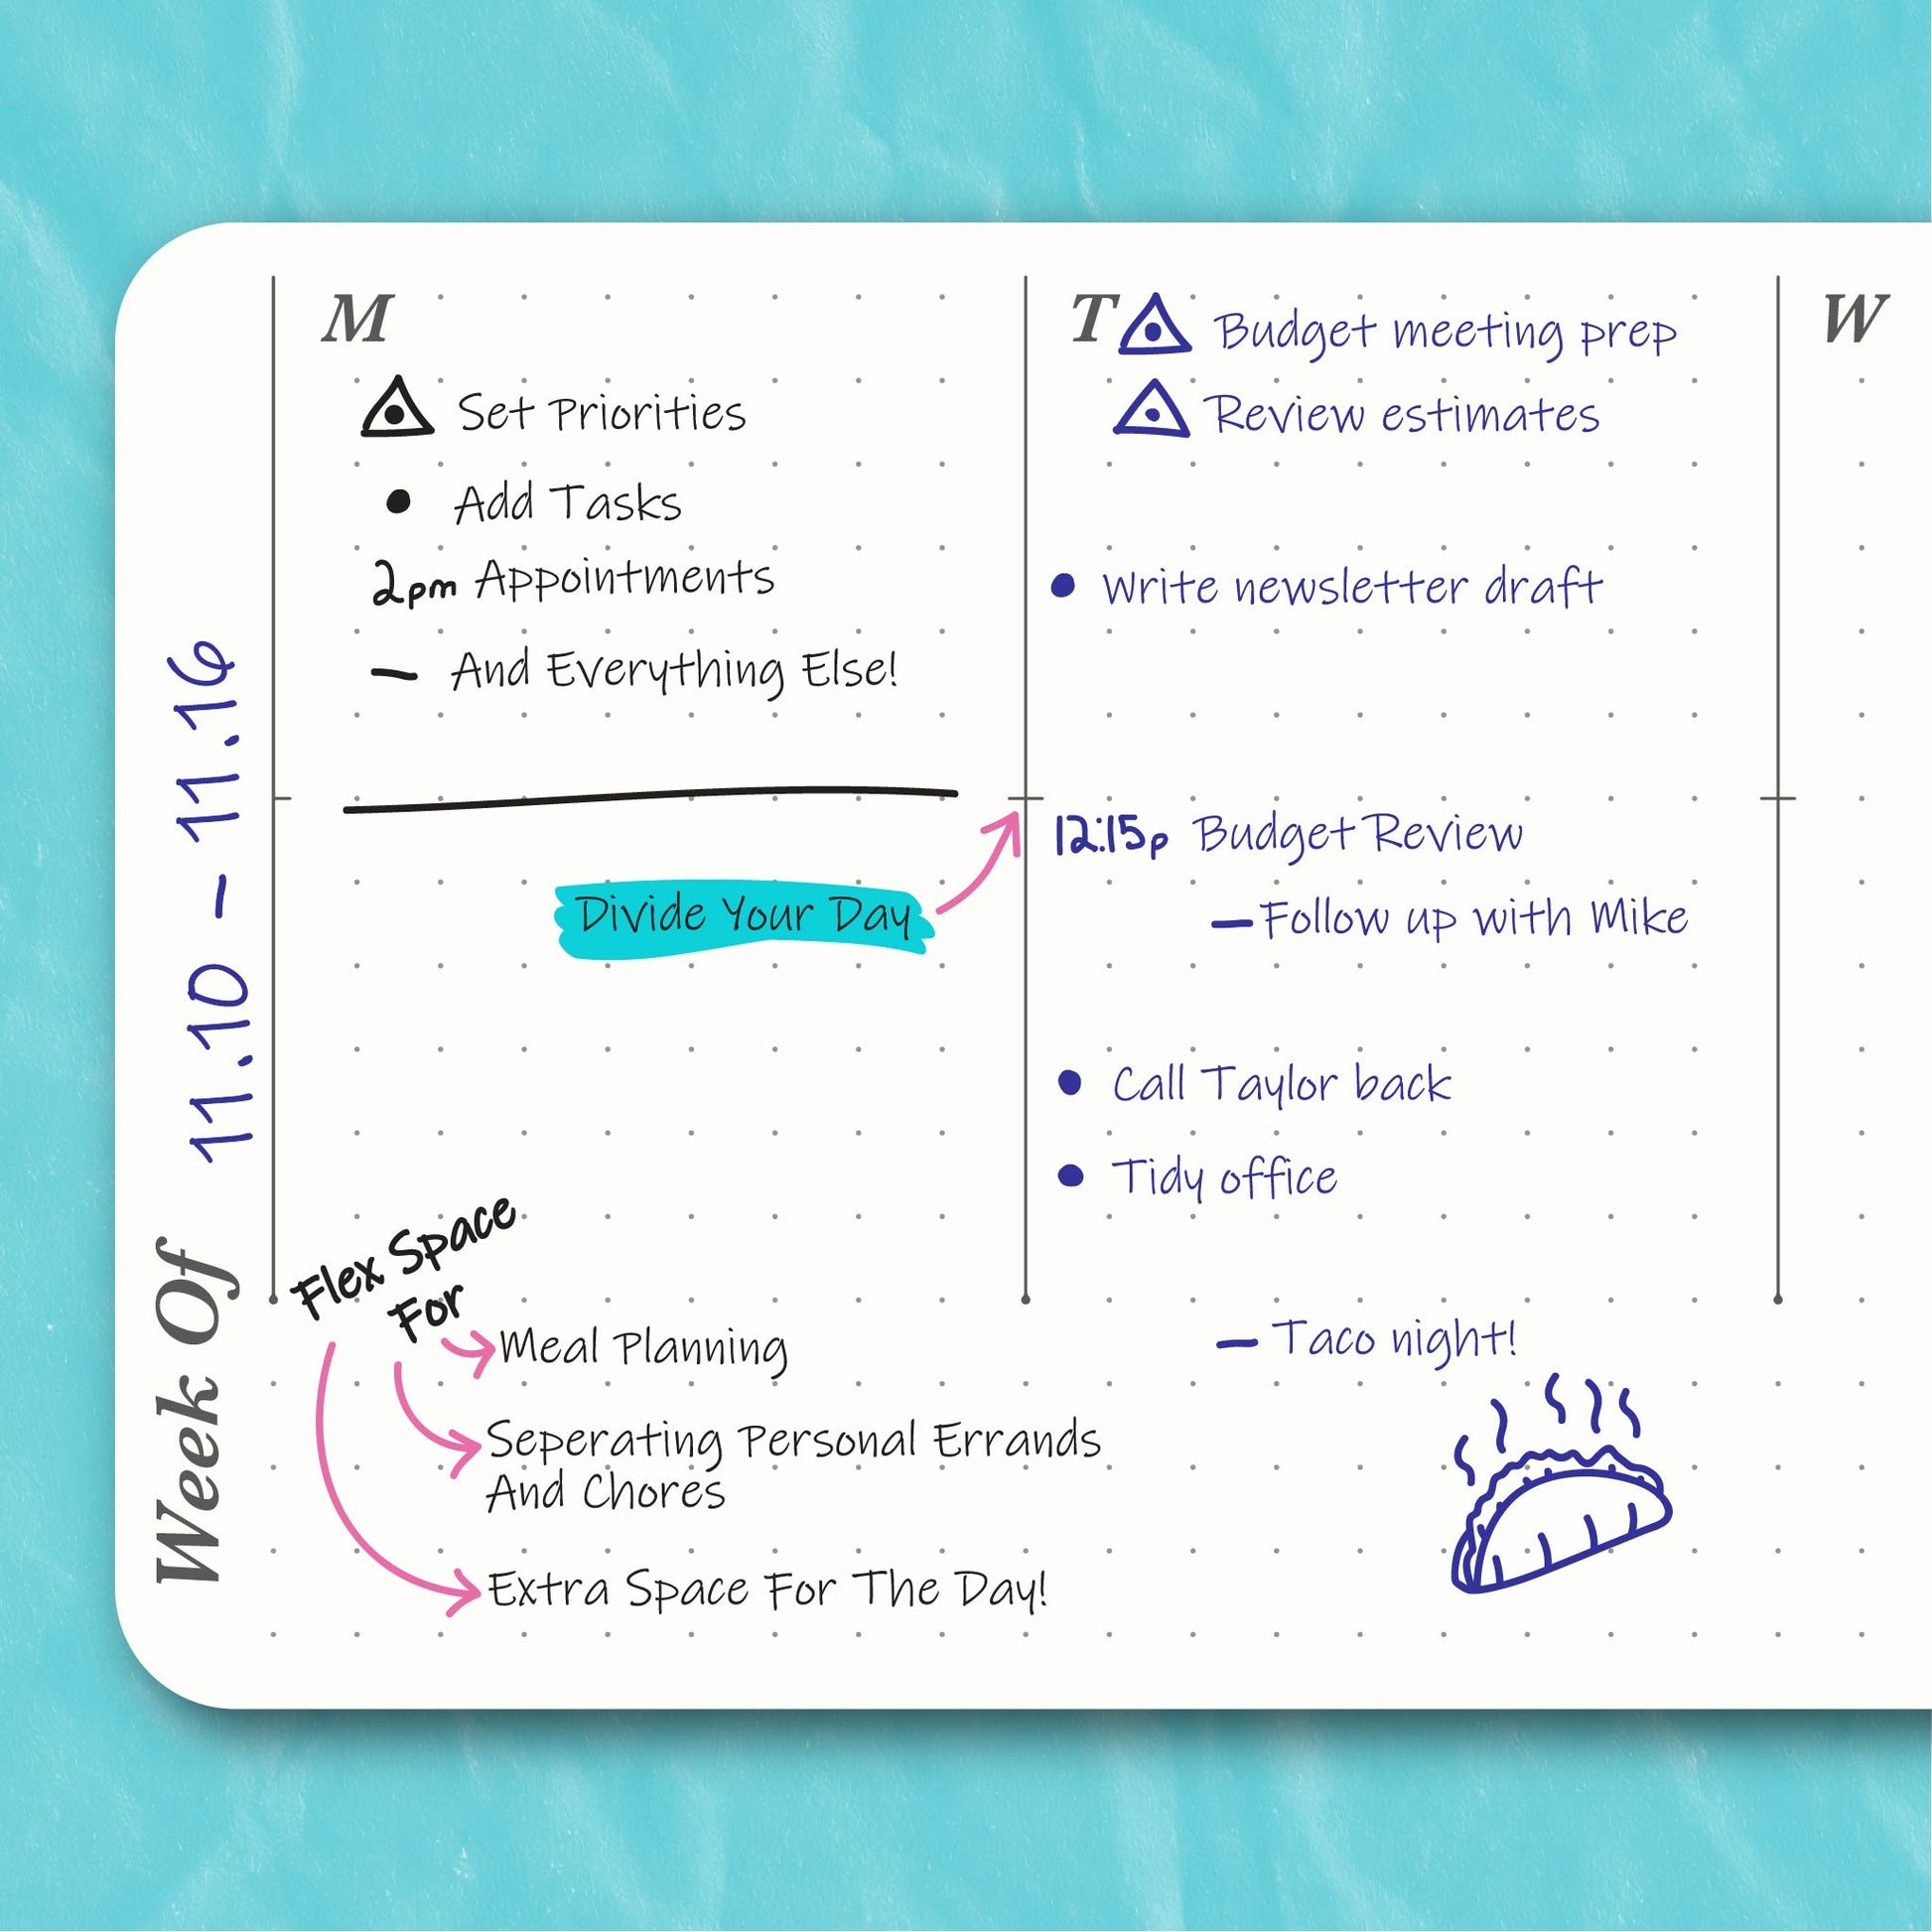 Week Of 11.10 – 11.16
M
Set Priorities
• Add Tasks
2pm Appointments
– And Everything Else!
Divide Your Day
Flex Space
For
Meal Planning
Seperating Personal Errands
And Chores
Extra Space For The Day!
T Budget meeting prep
Review estimates
• Write newsletter draft
12:15p Budget Review
– Follow up with Mike
• Call Taylor back
• Tidy office
– Taco night!
W